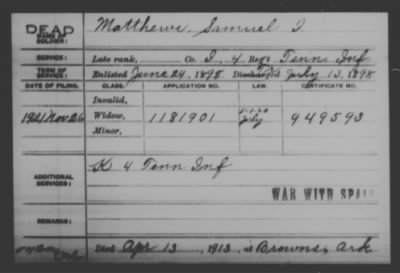 DEAD
NAME OF SOLDIER: Matthews, Samuel I
SERVICE: Late rank, Co. I, 4 Reg't Tenn Inf
TERM OF SERVICE: Enlisted June 24, 1898 Discharged July 13, 1898
DATE OF FILING. CLASS. APPLICATION NO. LAW. CERTIFICATE NO.
Invalid,
1921 Nov 26 Widow, 1181901 July 949593
Minor,
ADDITIONAL SERVICES: K 4 Tenn Inf
WAR WITH SPAIN
REMARKS:
Died Apr 13, 1913, at Browns, Ark